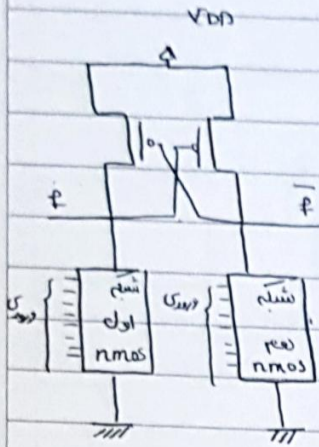 VDD
f
f̄
ورودی
شبکه
اول
nmos
ورودی
شبکه
دوم
nmos